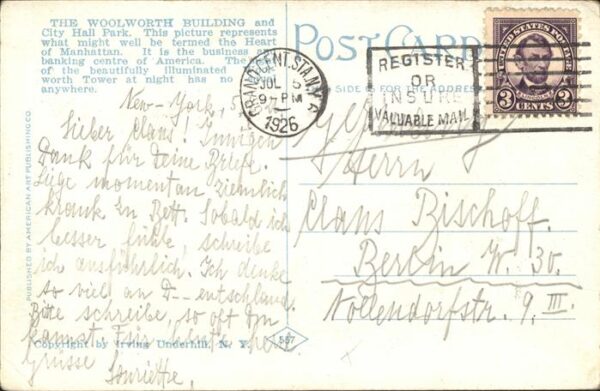 THE WOOLWORTH BUILDING and
City Hall Park. This picture represents
what might well be termed the Heart
of Manhattan. It is the business an
banking centre of America. The
of the beautifully illuminated
worth Tower at night has no
anywhere.
POST CARD
E SIDE IS FOR THE ADDRESS
GRAND CENT. STA. N.Y.
JUL 5
9 PM
1926
REGISTER
OR
INSURE
VALUABLE MAIL
UNITED STATES POSTAGE
LINCOLN
3 CENTS 3
New-York, 5
Lieber Claus! Innigen
Dank für Deine Briefe.
Liege momentan ziemlich
krank zu Bett. Sobald ich
besser fühle, schreibe
ich ausführlich. Ich denke
so viel an D--eutschland.
Bitte schreibe, so oft Du
kannst. Für heute
Grüsse
Henriette.
Germany
Herrn
Claus Bischoff.
Berlin W. 30.
Nollendorfstr. 9 III.
PUBLISHED BY AMERICAN ART PUBLISHING CO
Copyright by Irving Underhill, N. Y.
587